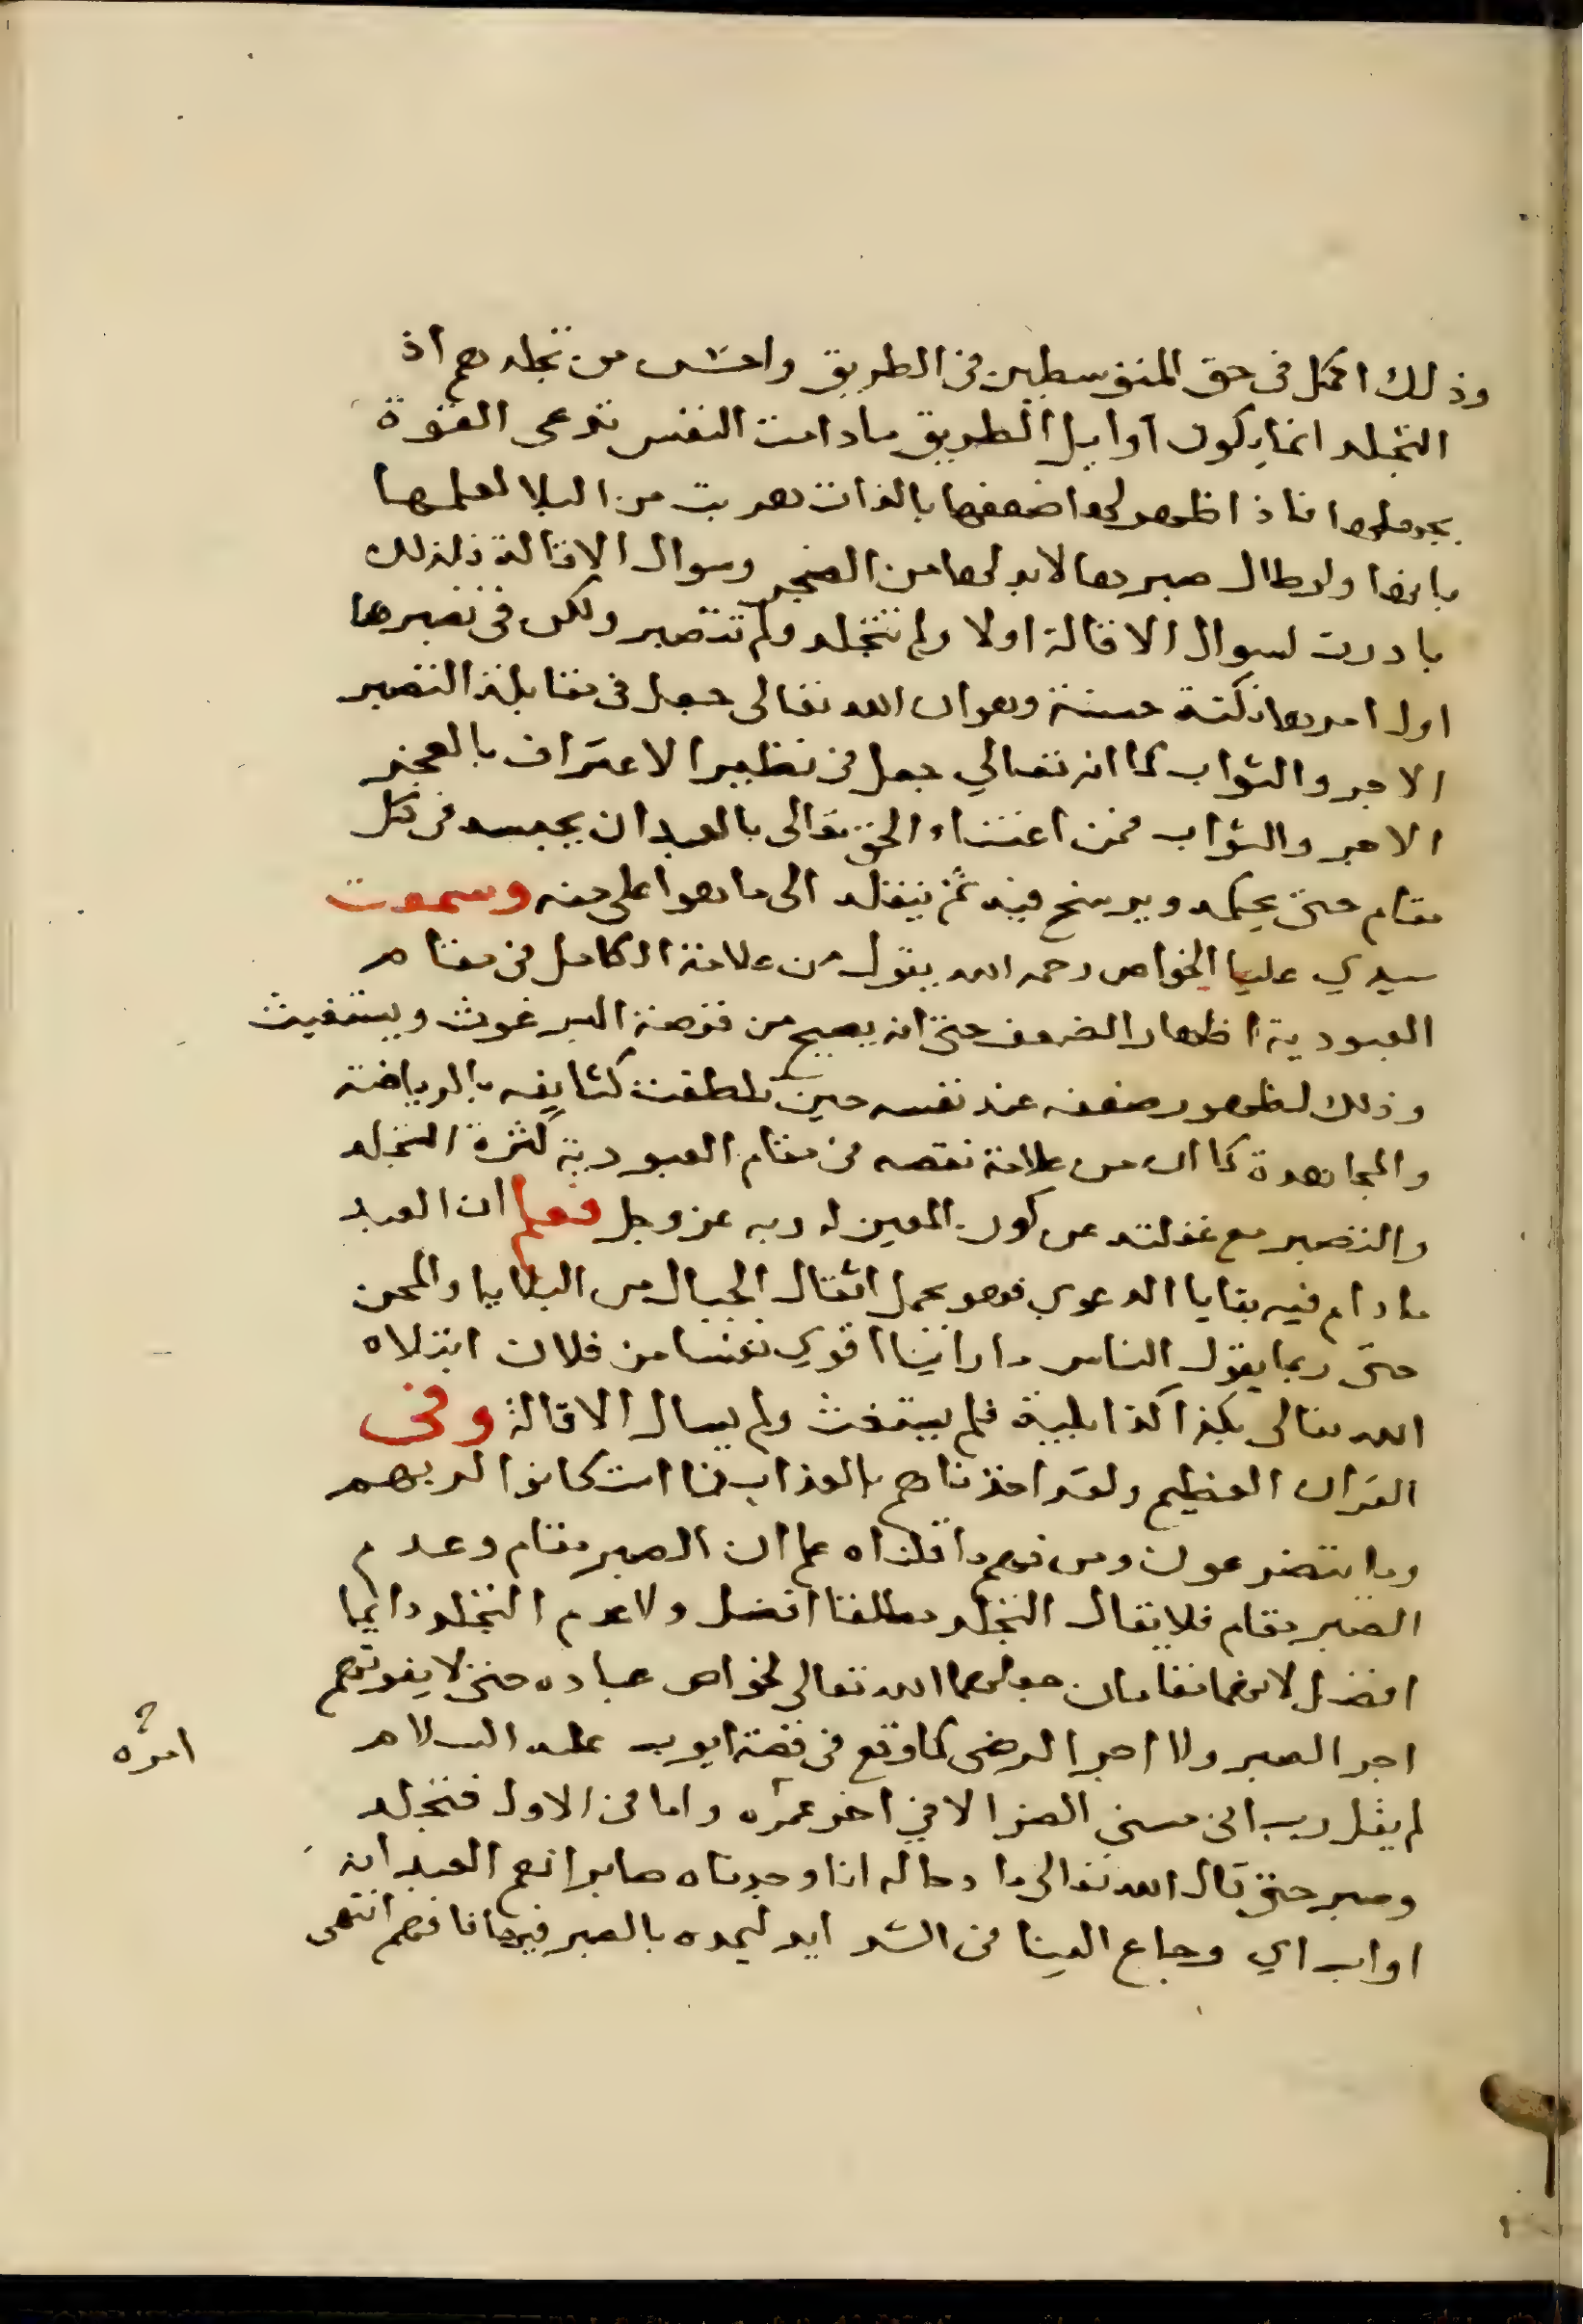 وذلك اكمل فى حق المتوسطين فى الطريق واحسن من تجلدهم اذ
التجلد انما يكون اوايل الطريق مادامت النفس تدعى القوة
بجهلها فاذا ظهر لها ضعفها بالذات هربت من البلا لعلمها
بانها ولو طال صبرها لابد لها من الضجر وسوال الاقالة فلذلك
بادرت لسوال الاقالة اولا ولم تتجلد ولم تتصبر ولكن فى تصبرها
اول امرها نكتة حسنة وهو ان الله تعالى جعل فى مقابلة التصبر
الاجر والثواب كما انه تعالي جعل فى نظير الاعتراف بالعجز
الاجر والثواب فمن اعتناء الحق تعالى بالعبد ان يحبسه فى كل
مقام حتى يحكمه ويرسخ فيه ثم ينقله الى ما هو اعلى منه وسمعت
سيدي عليا الخواص رحمه الله يقول من علامة الكامل فى مقام
العبودية اظهار الضعف حتى انه يصيح من قرصة البرغوث ويستغيث
وذلك لظهور ضعفه عند نفسه حين تلطفت كثايفه بالرياضة
والمجاهدة كما ان من علامة نقصه فى مقام العبودية كثرة التجلد
والتصبر مع غفلته عن كون المعين له ربه عز وجل فعلم ان العبد
مادام فيه بقايا الدعوي فهو يحمل اثقال الجبال من البلايا والمحن
حتى ربما يقول الناس ما راينا اقوي نفسا من فلان ابتلاه
الله تعالى بكذا كذا بلية فلم يستغث ولم يسال الاقالة وفى
القران العظيم ولقد اخذناهم بالعذاب فما استكانوا لربهم
وما يتضرعون ومن فهم ما قلناه علم ان الصبر مقام وعدم
الصبر مقام فلا يقال التجلد مطلقا افضل ولا عدم التجلد دايما
افضل لانهما مقامان جعلهما الله تعالى لخواص عباده حتى لا يفوتهم
اجر الصبر ولا اجر الرضى كما وقع فى قصة ايوب عليه السلام
لم يقل رب انى مسني الضر الا في اخر عمره واما فى الاول فتجلد
وصبر حتى قال الله تعالى مادحا له انا وجدناه صابرا نعم العبد انه
اواب اي رجاع الينا فى الشدايد ليمده بالصبر فيها فافهم انتهى
امره